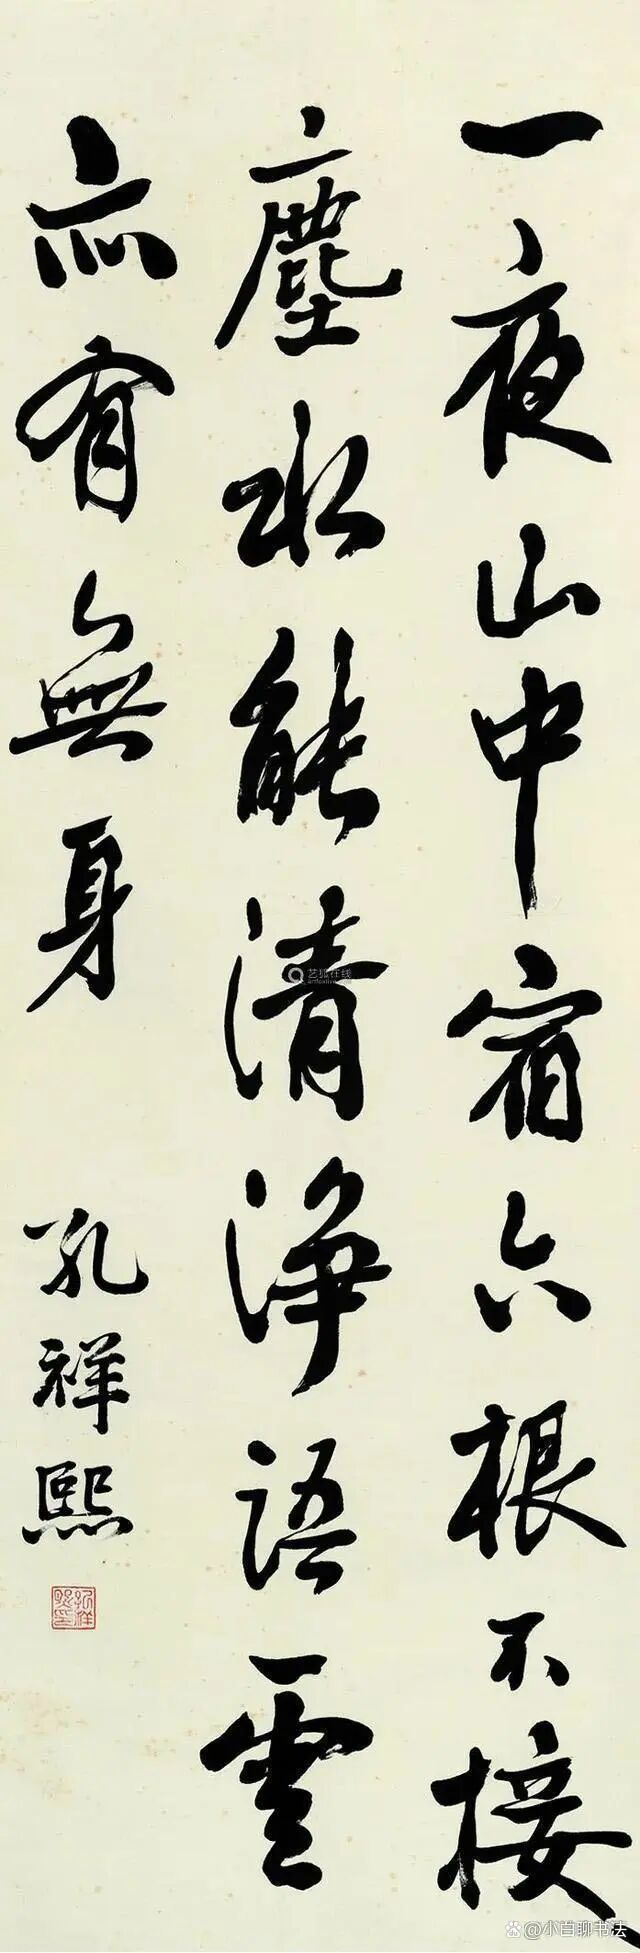 一夜山中宿六根不接
塵水能清淨語雲
亦有無身
孔祥熙
孔祥熙印
艺狐在线
artfoxlive.com
@小白聊书法